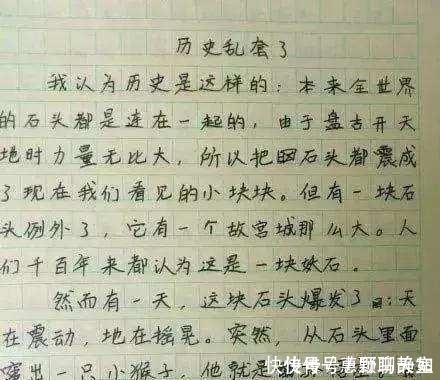 历史乱套了
我认为历史是这样的：本来全世界
的石头都是连在一起的，由于盘古开天
地时力量无比大，所以把石头都震成
了现在我们看见的小块块。但有一块石
头例外了，它有一个故宫城那么大。人
们千百年来都认为这是一块妖石。
然而有一天，这块石头爆发了：天
在震动，地在摇晃。突然，从石头里面
窜出一只小猴子，他就是